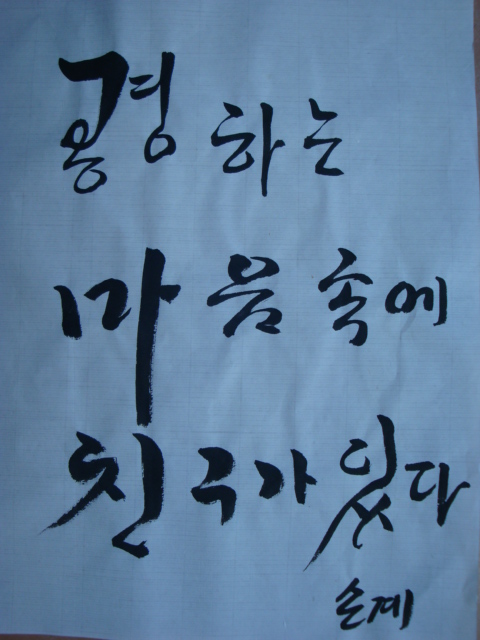 공경하는
마음속에
친구가 있다
손계